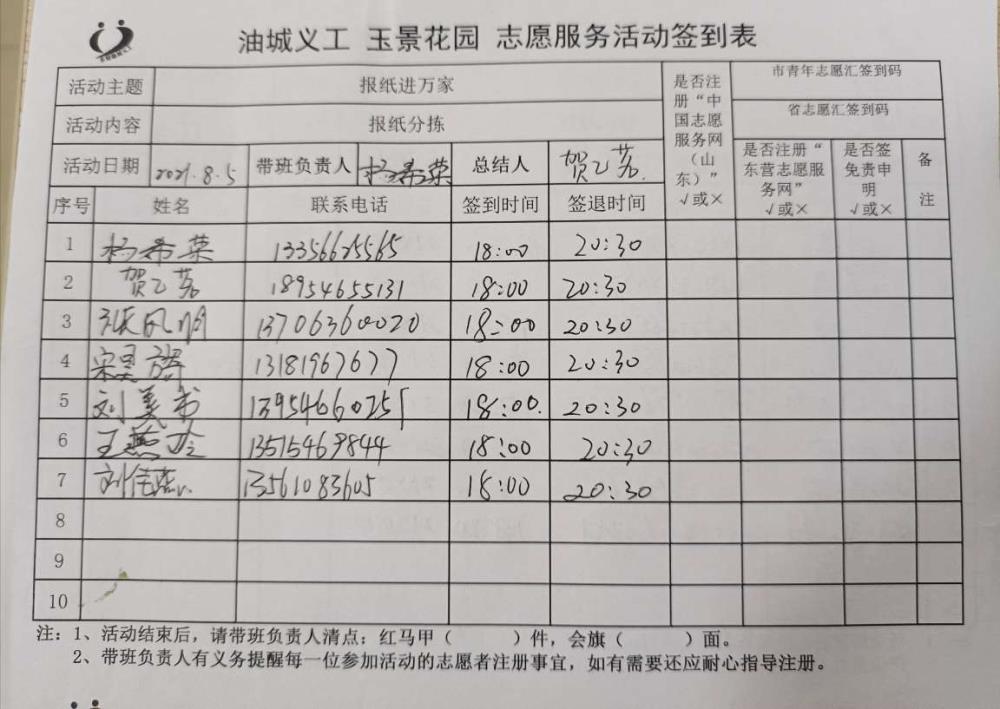 油城义工 玉景花园 志愿服务活动签到表
活动主题 报纸进万家 是否注册“中国志愿服务网（山东）”√或× 市青年志愿汇签到码
活动内容 报纸分拣 省志愿汇签到码
活动日期 2021.8.5 带班负责人 杨希荣 总结人 贺乙茗. 是否注册“东营志愿服务网”√或× 是否签免责申明√或× 备注
序号 姓名 联系电话 签到时间 签退时间
1 杨希荣 13356625565 18:00 20:30
2 贺乙茗 18954655131 18:00 20:30
3 张风明 13706360020 18:00 20:30
4 宋昊 13181967677 18:00 20:30
5 刘美书 13954660251 18:00. 20:30
6 王燕玲 13515469844 18:00 20:30
7 刘 13561083605 18:00 20:30
8
9
10
注：1、活动结束后，请带班负责人清点：红马甲（ ）件，会旗（ ）面。
2、带班负责人有义务提醒每一位参加活动的志愿者注册事宜，如有需要还应耐心指导注册。